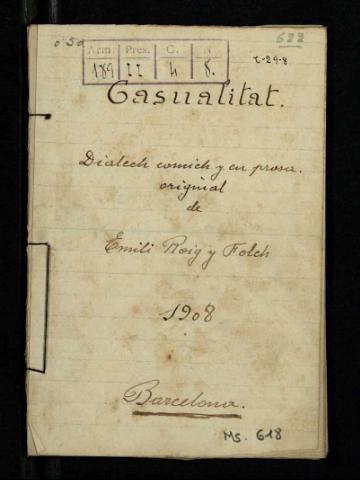 0'50
622
Arm. Pres. C. N.
189 II 4 8.
r-29-8
Casualitat.
Dialech comich y en prosa.
original
de
Emili Roig y Folch
1908
Barcelona.
Ms. 618